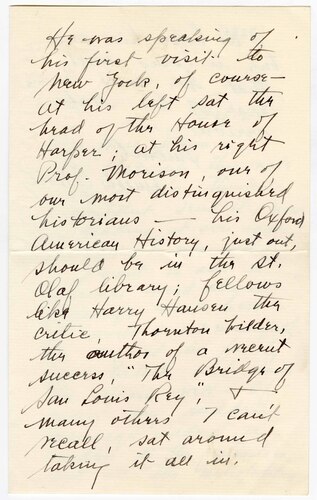 He was speaking of
his first visit to
New York, of course—
At his left sat the
head of the House of
Harper; at his right
Prof. Morison, one of
our most distinguished
historians — his Oxford
American History, just out,
should be in the St.
Olaf library; fellows
like Harry Hansen the
critic, Thornton Wilder,
the author of a recent
success, "The Bridge of
San Louis Rey", +
many others I can't
recall, sat around
taking it all in.